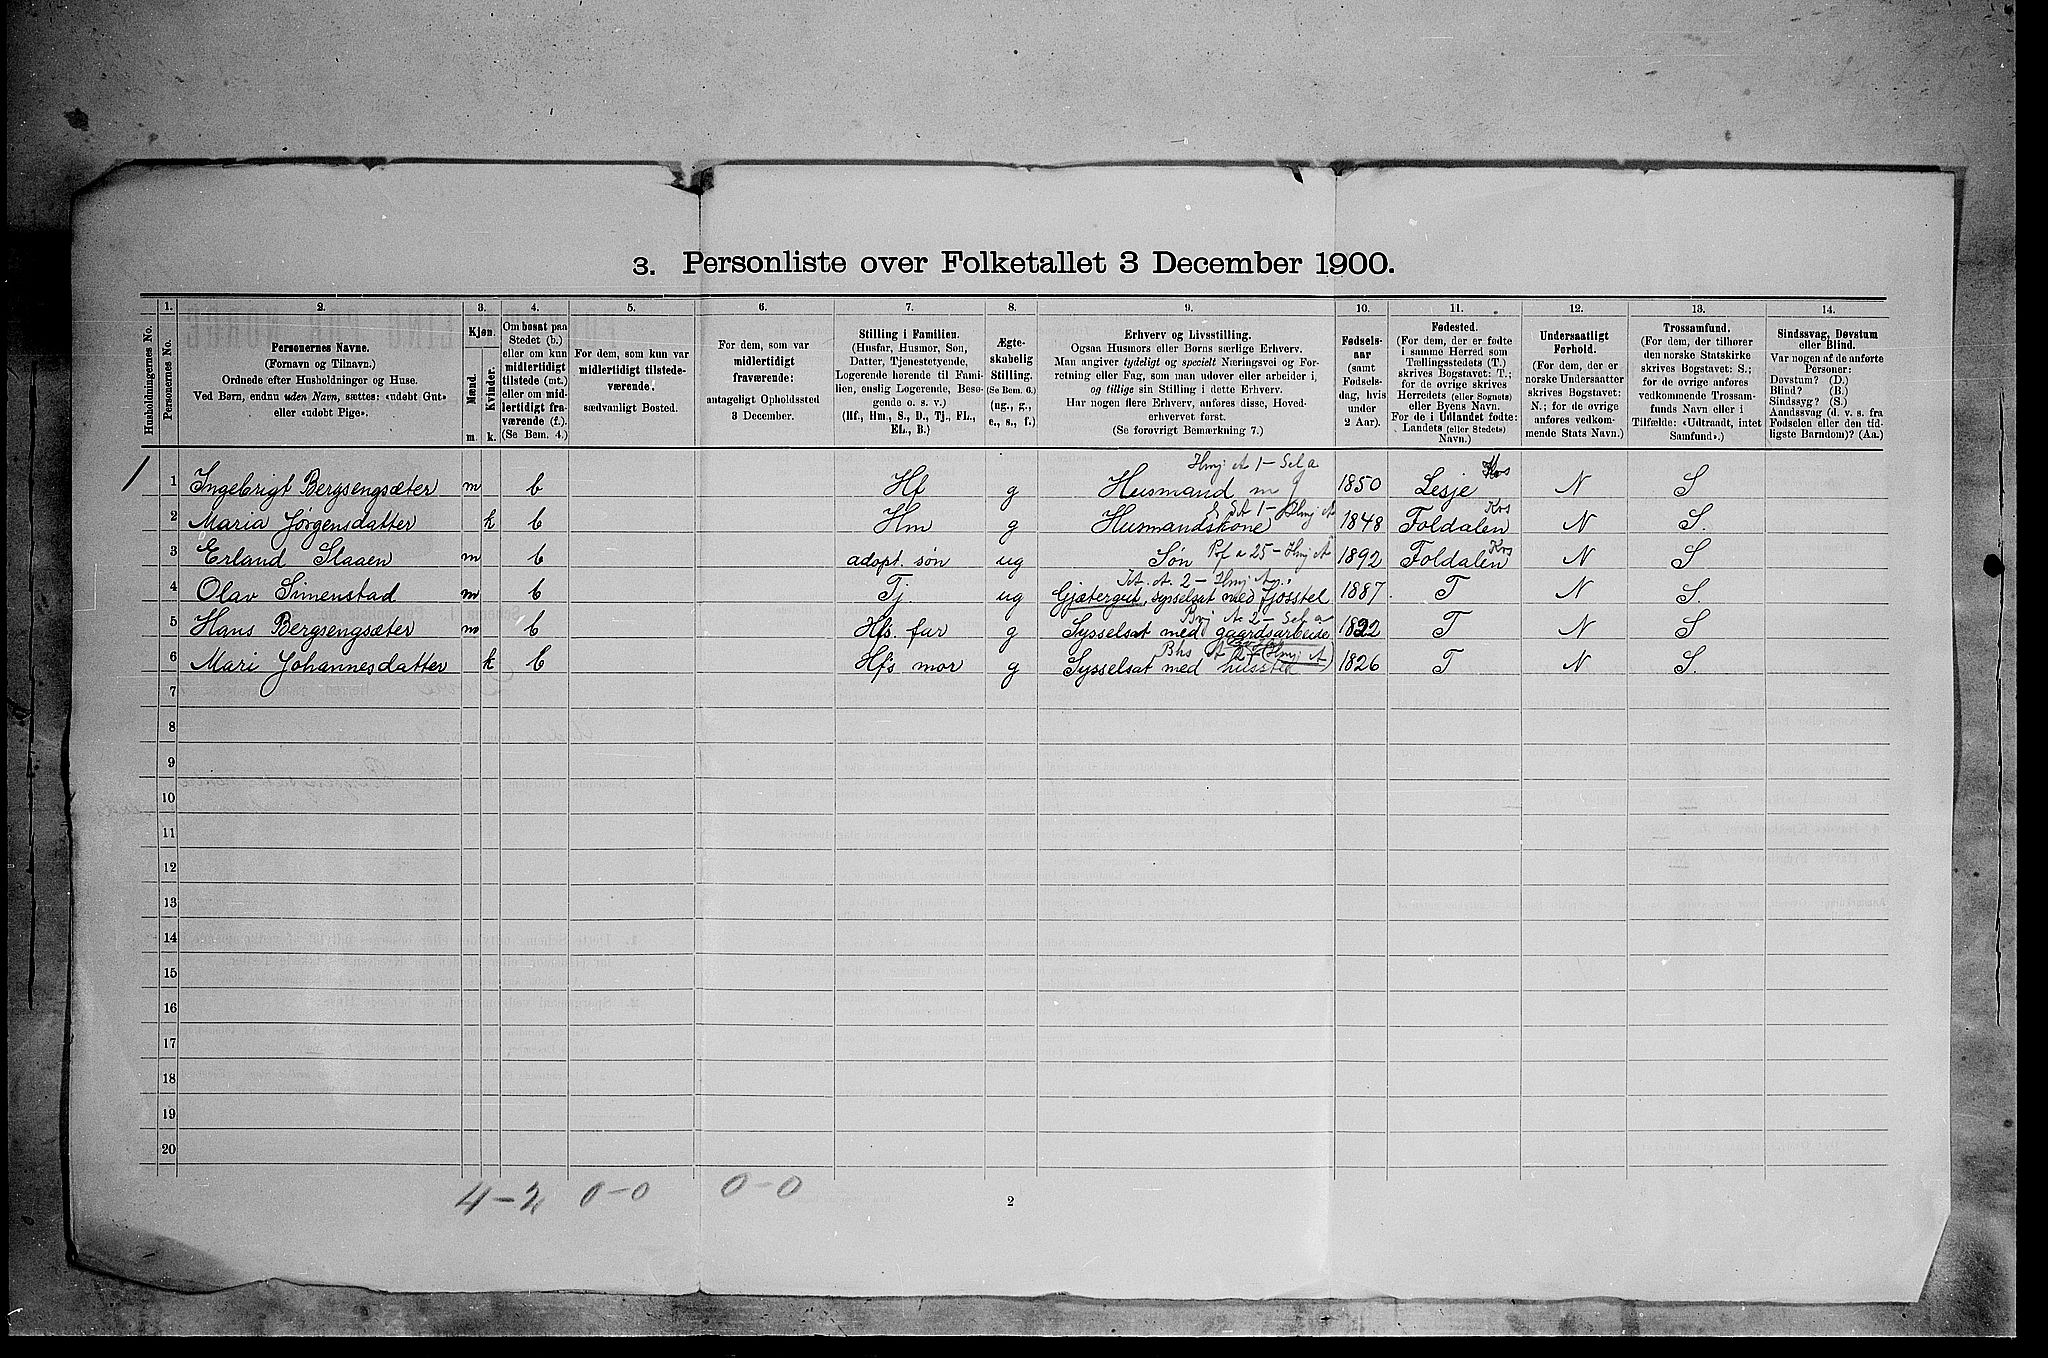 3. Personliste over Folketallet 3 December 1900.
1. 2. 3. 4. 5. 6. 7. 8. 9. 10. 11. 12. 13. 14.
Husholdningernes No.
Personernes No.
Personernes Navne.
(Fornavn og Tilnavn.)
Ordnede efter Husholdninger og Huse.
Ved Børn, endnu uden Navn, sættes: «udøbt Gut»
eller «udøbt Pige».
Kjøn.
Mænd.
Kvinder.
m. k.
Om bosat paa
Stedet (b.)
eller om kun
midlertidigt
tilstede (mt.)
eller om mid-
lertidigt fra-
værende (f.).
(Se Bem. 4.)
For dem, som kun var
midlertidigt tilstede-
værende:
sædvanligt Bosted.
For dem, som var
midlertidigt
fraværende:
antageligt Opholdssted
3 December.
Stilling i Familien.
(Husfar, Husmor, Søn,
Datter, Tjenestetyende,
Logerende hørende til Fami-
lien, enslig Logerende, Besø-
gende o. s. v.)
(Hf., Hm., S., D., Tj., FL.,
EL., B.)
Ægte-
skabelig
Stilling.
(Se Bem. 6.)
(ug., g.,
e., s., f.)
Erhverv og Livsstilling.
Ogsaa Husmors eller Børns særlige Erhverv.
Man angiver tydeligt og specielt Næringsvei og For-
retning eller Fag, som man udøver eller arbeider i,
og tillige sin Stilling i dette Erhverv.
Har nogen flere Erhverv, anføres disse, Hoved-
erhvervet først.
(Se forøvrigt Bemærkning 7.)
Fødsels-
aar
(samt
Fødsels-
dag, hvis
under
2 Aar).
Fødested.
(For dem, der er fødte
i samme Herred som
Tællingsstedets (T.)
skrives Bogstavet: T.;
for de øvrige skrives
Herredets (eller Sognets)
eller Byens Navn.
For de i Udlandet fødte:
Landets (eller Stedets)
Navn.)
Undersaatligt
Forhold.
(For dem, der er
norske Undersaatter
skrives Bogstavet:
N.; for de øvrige
anføres vedkom-
mende Stats Navn.)
Trossamfund.
(For dem, der tilhører
den norske Statskirke
skrives Bogstavet: S.;
for de øvrige anføres
vedkommende Trossam-
funds Navn eller i
Tilfælde: «Udtraadt, intet
Samfund».)
Sindssvag, Døvstum
eller Blind.
Var nogen af de anførte
Personer:
Døvstum? (D.)
Blind? (B.)
Sindssyg? (S.)
Aandssvag (d. v. s. fra
Fødselen eller den tid-
ligste Barndom)? (Aa.)
Hmj A 1 - Sel a
1 1 Ingebrigt Bergsengsæter m b Hf g Husmand m 1850 Lesje Krs N S
A 1 - Hmj A
2 Maria Jørgensdatter k b Hm g Husmandskone 1848 Foldalen Krs N S.
3 Erland Staaen m b adopt. søn ug Søn Pof a 25 - Hmj A 1892 Foldalen Krs N S
A. 2 - Hmj A
4 Olav Simenstad m b Tj ug Gjætergut, sysselsat med fjøsstel 1887. T N S.
A 2 - Sel a
5 Hans Bergsengsæter m b Hfs. far g Sysselsat med gaardsarbeide 1822 T N S
Bhs A 27 (Hmj A)
6 Mari Johannesdatter k b Hf's mor g Sysselsat med husstel 1826 T N S.
7
8
9
10
11
12
13
14
15
16
17
18
19
20
4-2 0-0 0-0
2